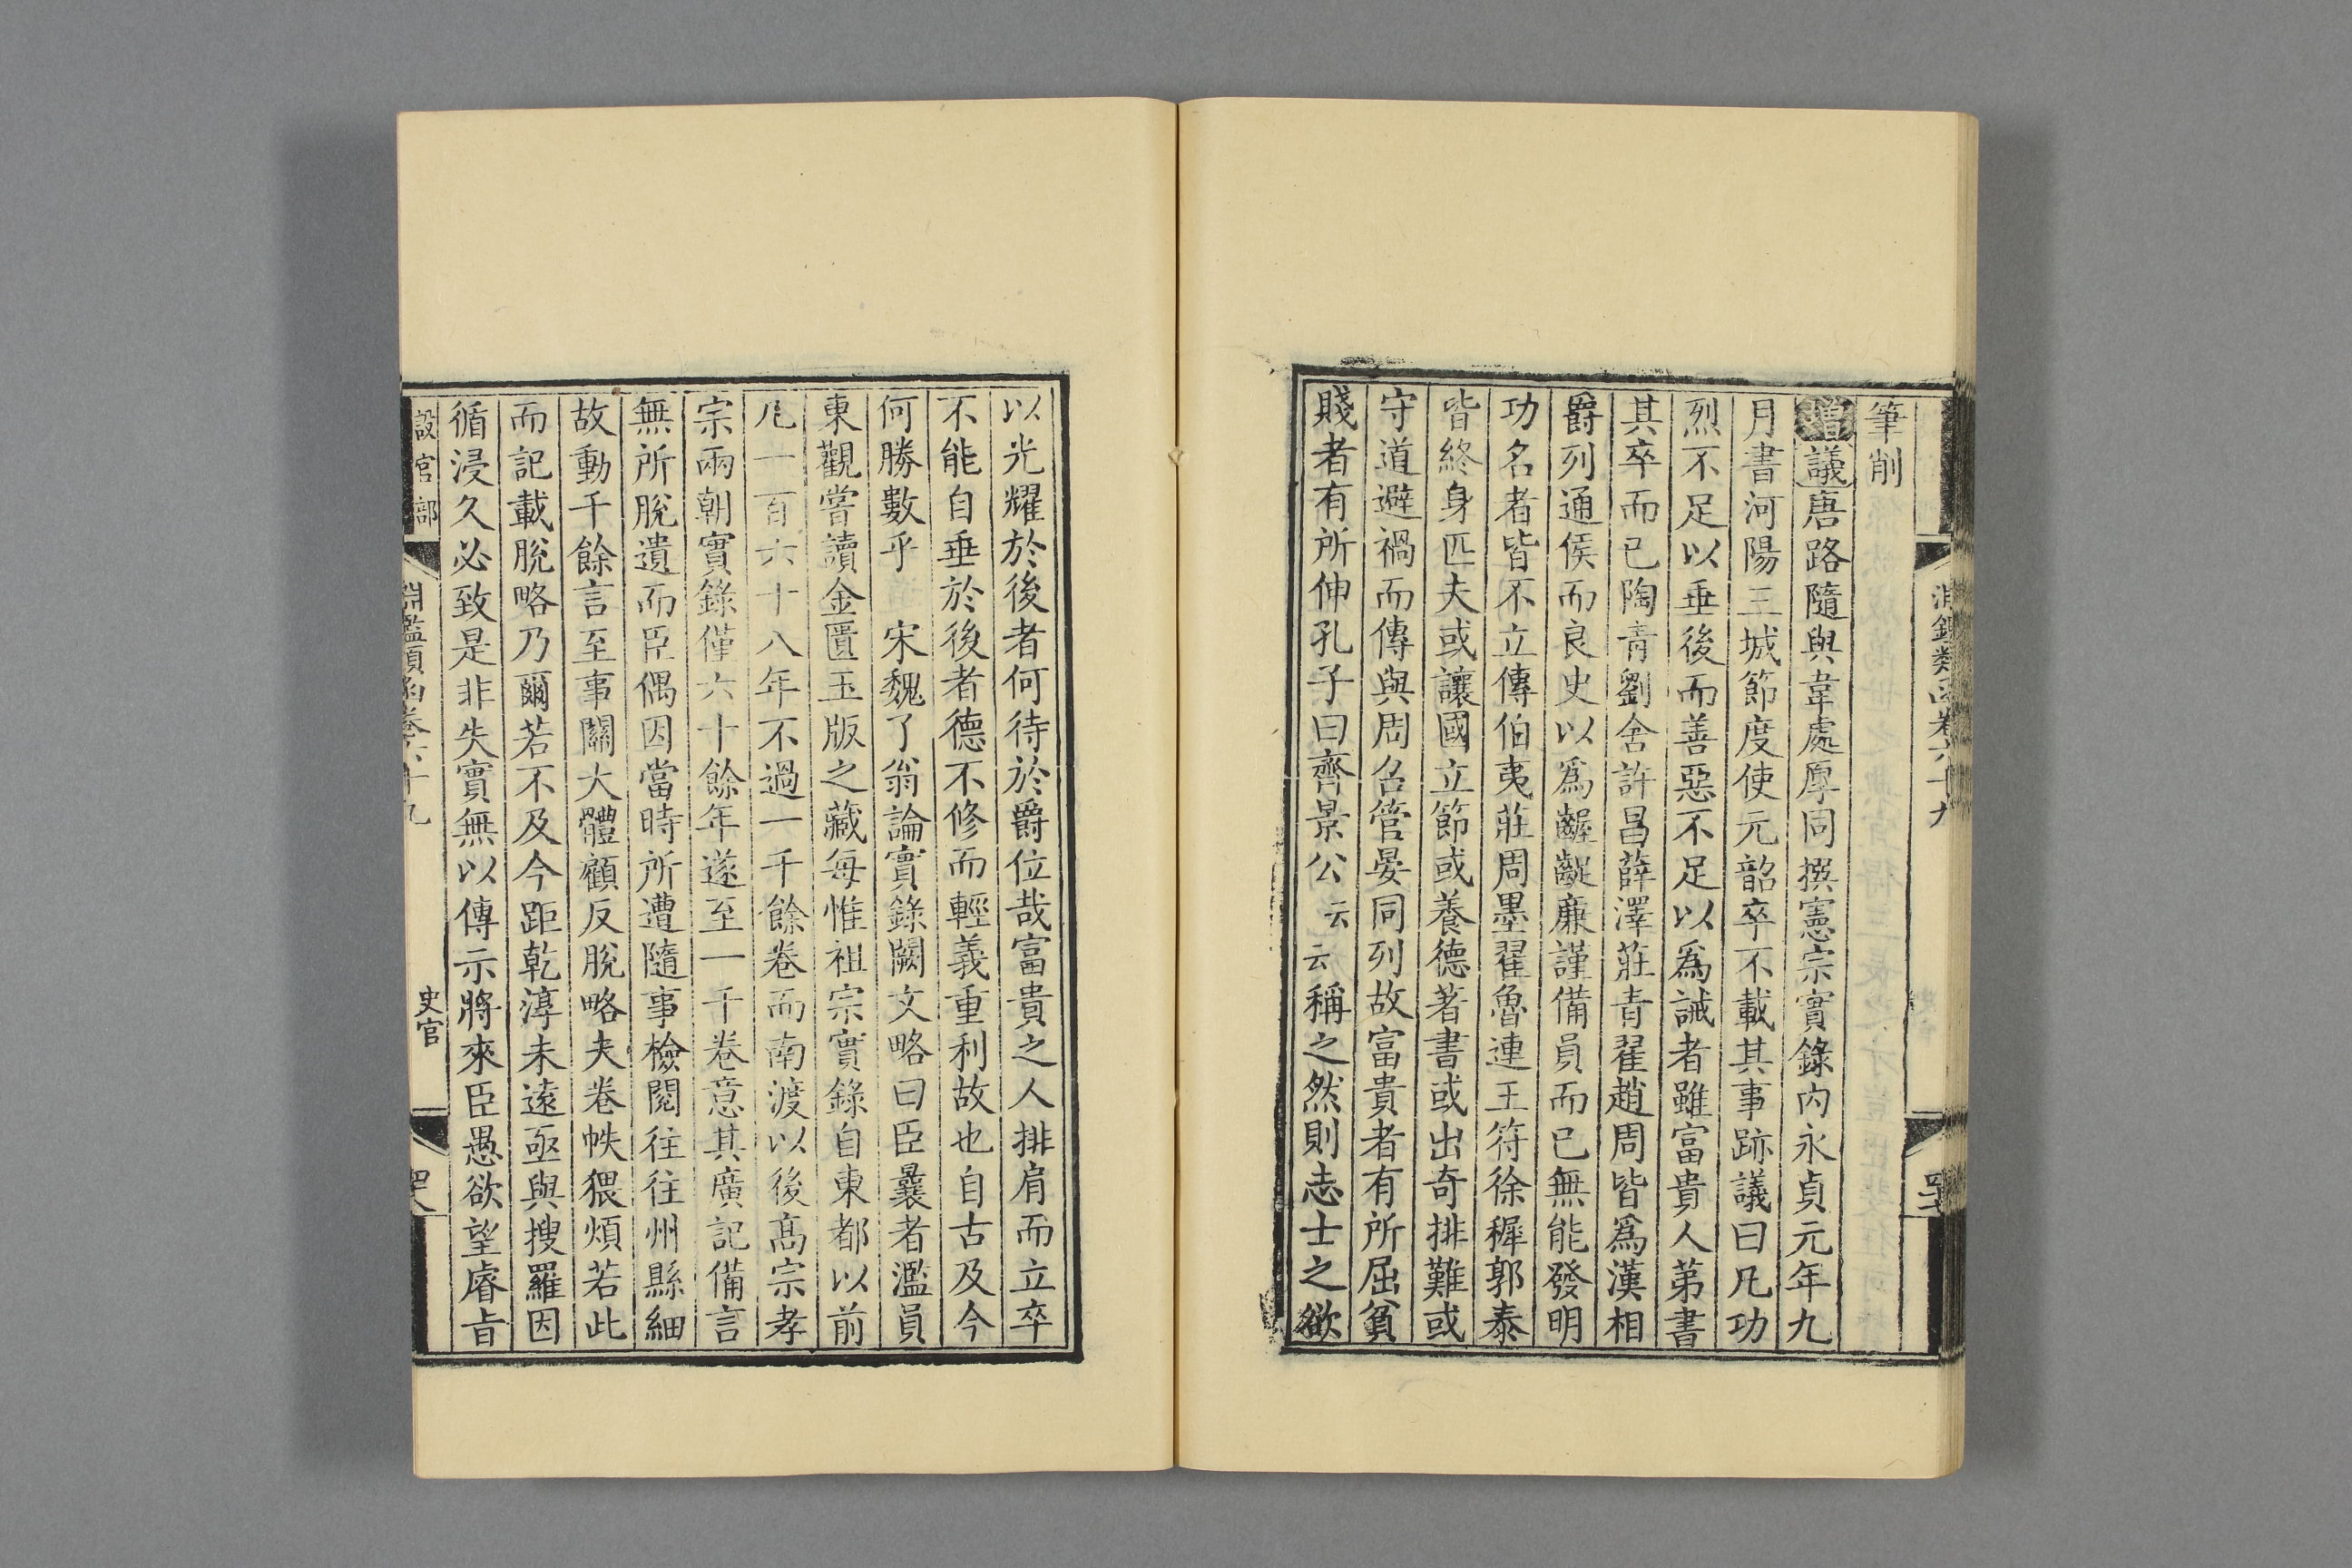 淵鑑類函卷六十九
筆削
增議唐路隨與韋處厚同撰憲宗實錄內永貞元年九
月書河陽三城節度使元韶卒不載其事跡議曰凡功
烈不足以垂後而善惡不足以爲誡者雖富貴人第書
其卒而已陶青劉舍許昌薛澤莊青翟趙周皆爲漢相
爵列通侯而良史以爲齷齪廉謹備員而已無能發明
功名者皆不立傳伯夷莊周墨翟魯連王符徐穉郭泰
皆終身匹夫或讓國立節或養德著書或出奇排難或
守道避禍而傳與周召管晏同列故富貴者有所屈貧
賤者有所伸孔子曰齊景公云云稱之然則志士之欲
以光耀於後者何待於爵位哉富貴之人排肩而立卒
不能自垂於後者德不修而輕義重利故也自古及今
何勝數乎 宋魏了翁論實錄闕文略曰臣曩者濫員
東觀嘗讀金匱玉版之藏每惟祖宗實錄自東都以前
凡一百六十八年不過一千餘卷而南渡以後高宗孝
宗兩朝實錄僅六十餘年遂至一千卷意其廣記備言
無所脫遺而臣偶因當時所遭隨事檢閱往往州縣細
故動千餘言至事關大體顧反脫略夫卷帙猥煩若此
而記載脫略乃爾若不及今距乾淳未遠亟與搜羅因
循浸久必致是非失實無以傳示將來臣愚欲望睿旨
設官部 淵鑑類函卷六十九 史官